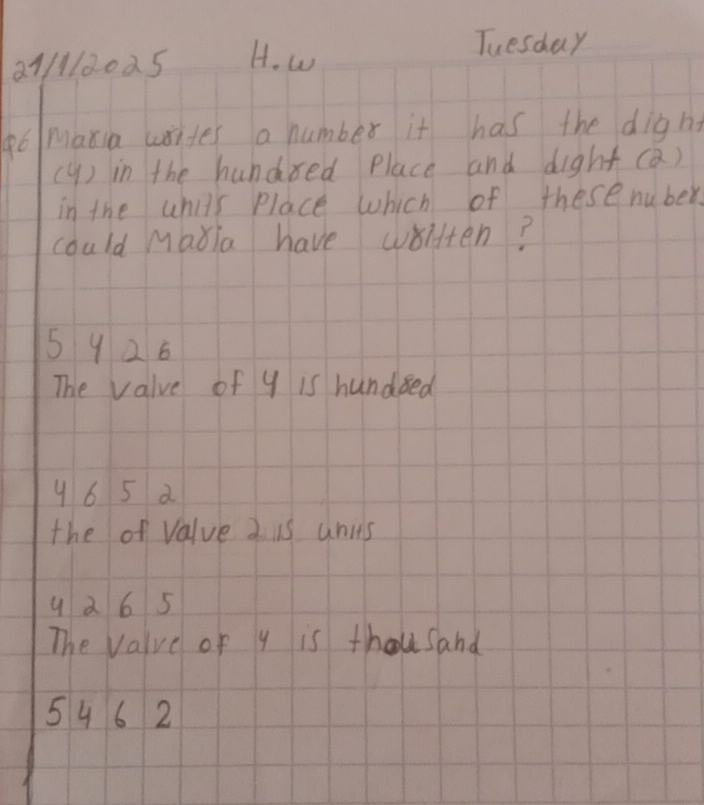 21/1/2025 H.w Tuesday
Q6 Maria writes a number it has the dight
(4) in the hundred Place and dight (2)
in the units Place which of these nuber
could Maria have written ?
5 4 2 6
The valve of 4 is hundred
4 6 5 2
the of valve 2 is units
4 2 6 5
The valve of 4 is thousand
5 4 6 2